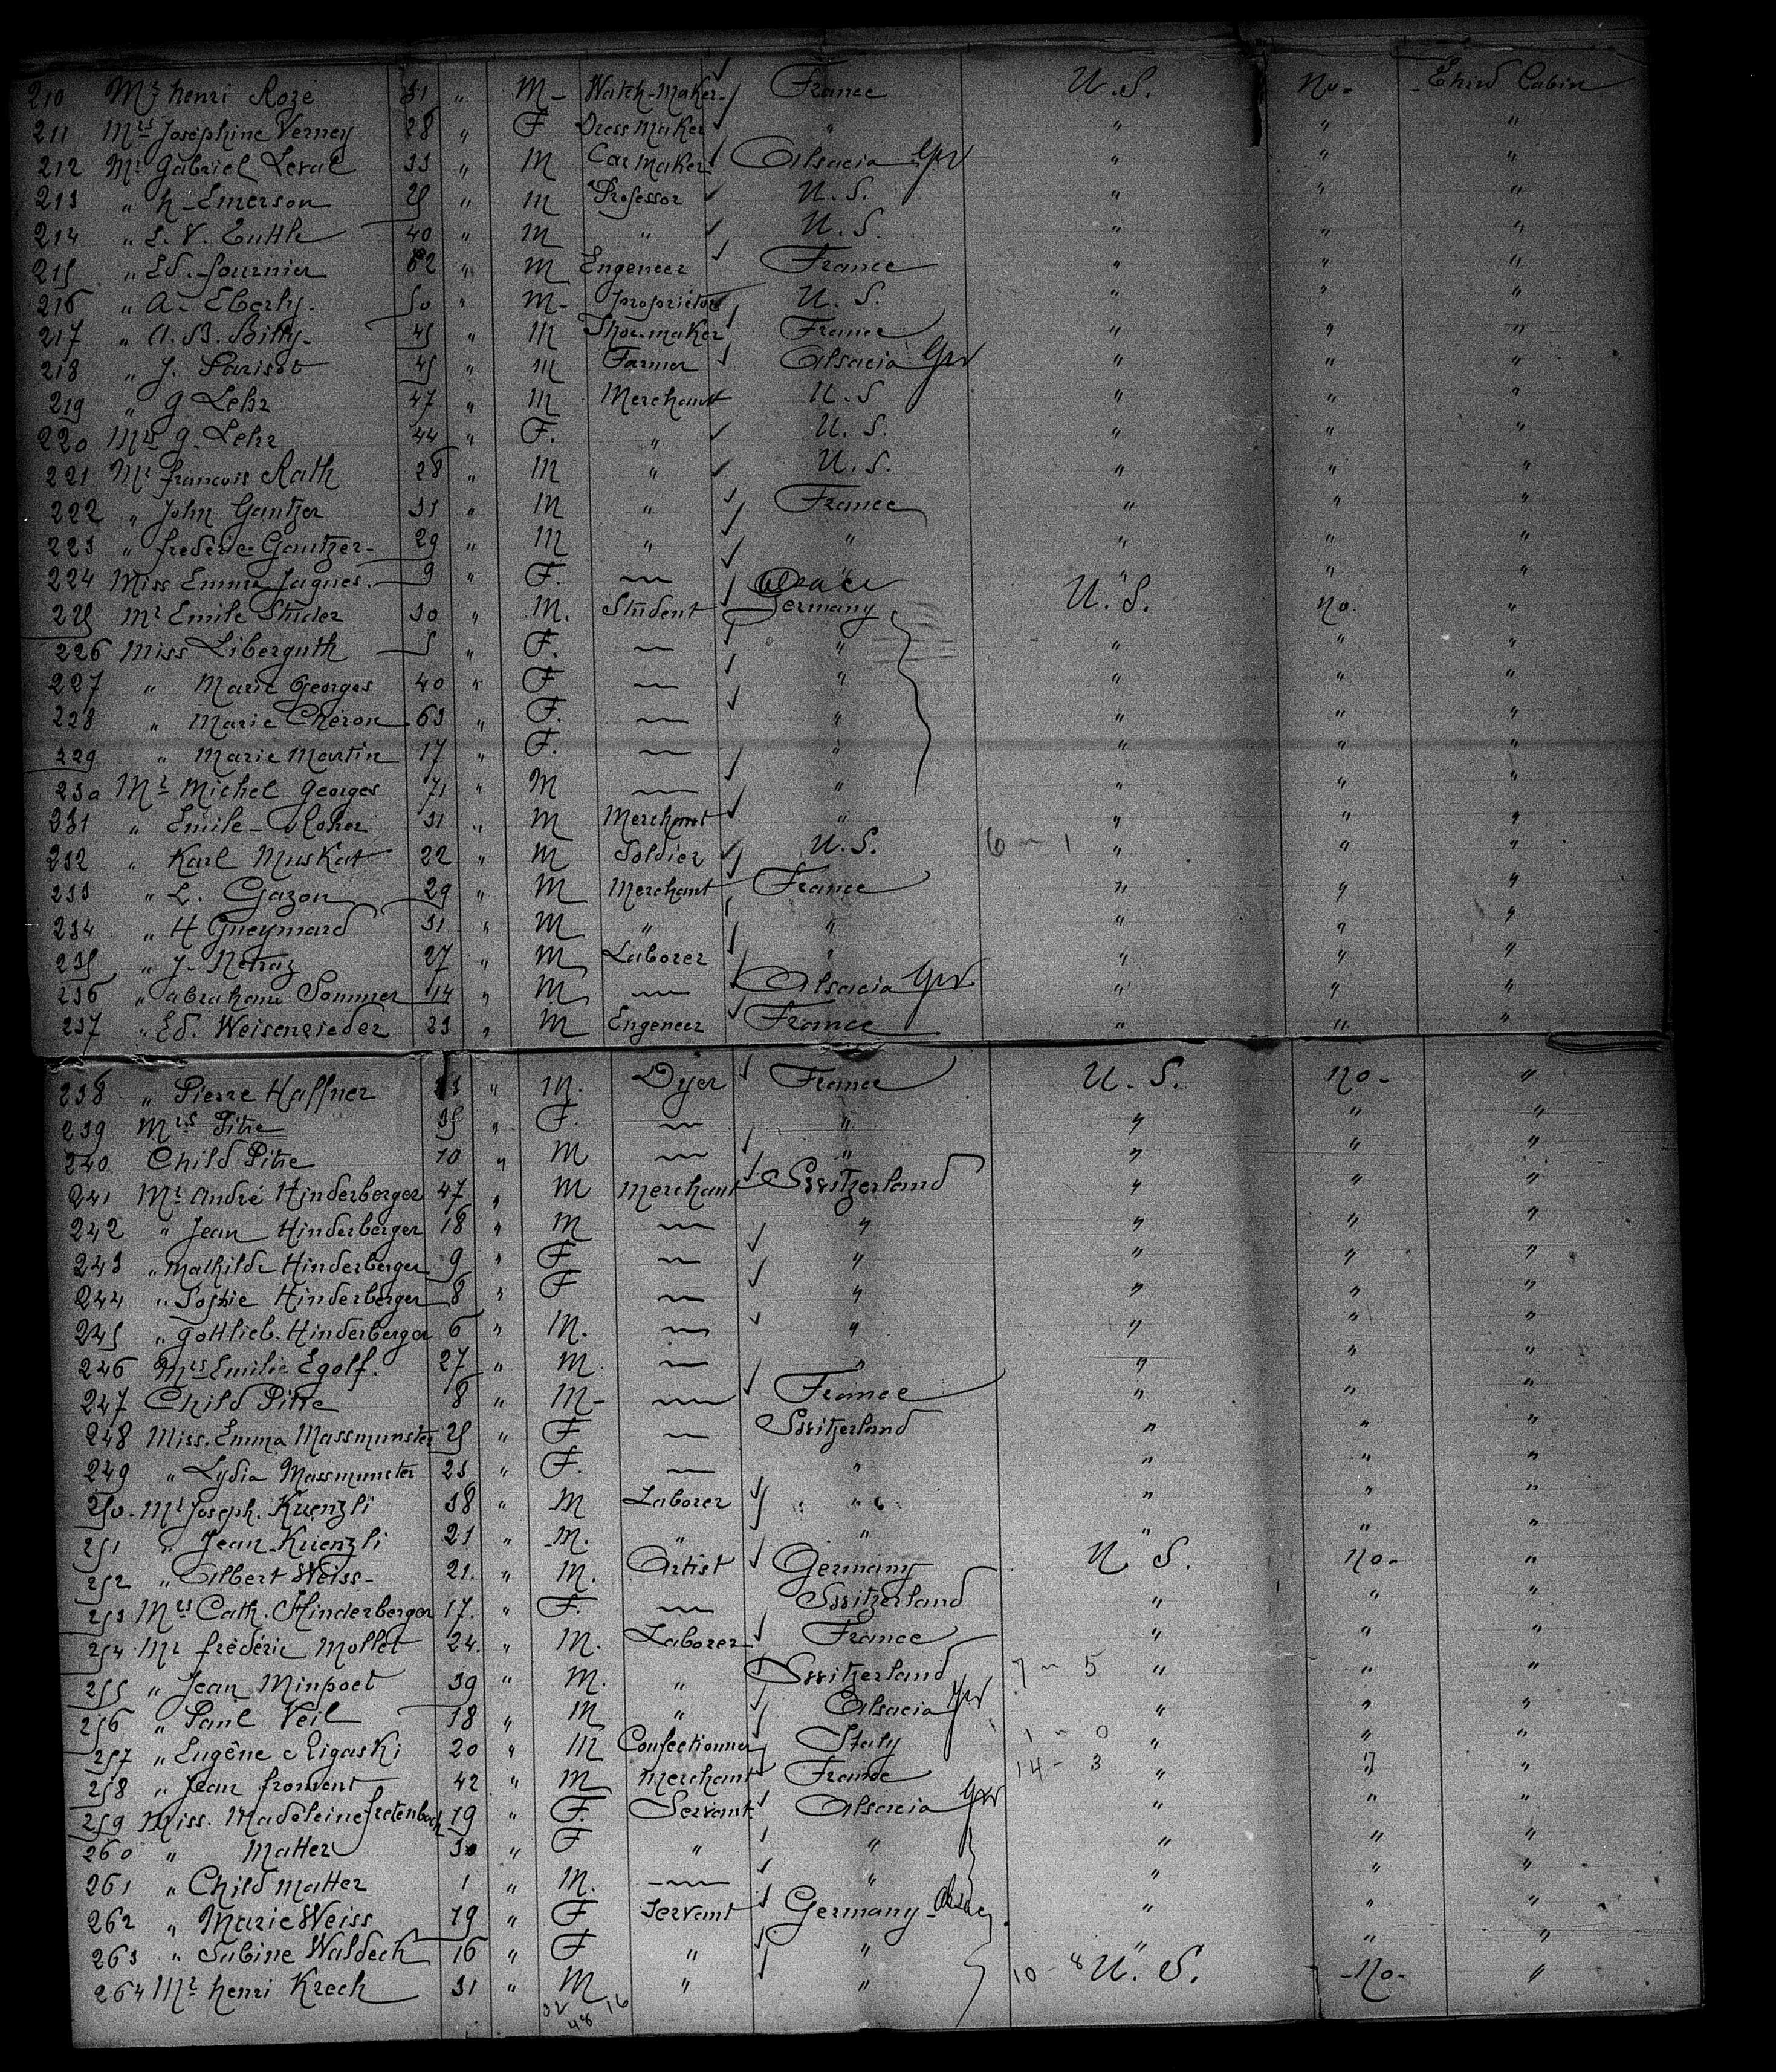 210 Mr henri Roze 31 " M- Watch-Maker- France U.S. No- Third Cabin
211 Mrs Joséphine Verney 28 " F Dress Maker " " " "
212 Mr Gabriel Leval 33 " M Car Maker Alsacia Ger " " "
213 " h-Emerson 25 " M Professor U.S. " " "
214 " L. V. Tuttle 40 " M " U.S. " " "
215 " Ed. fournier 62 " M Engeneer France " " "
216 " A- Eberly. 50 " M- proprietor U.S. " " "
217 " A. B. Billy- 45 " M Shoe-maker France " " "
218 " J. Parisot 45 " M Farmer Alsacia Ger " " "
219 " G Lehr 47 " M Merchant U.S " " "
220 Mrs G. Lehr 44 " F. " U.S. " " "
221 Mr françois Rath 28 " M " U.S. " " "
222 " John Gantzer 33 " M " France " " "
223 " frédéric Gantzer- 29 " M " " " " "
224 Miss Emma Jaques. 9 " F. — " " " "
225 Mr Emile Studer 30 " M. Student Germany U.S. no. "
226 Miss Liberguth 5 " F. — " " " "
227 " Marie Georges 40 " F — " " " "
228 " Marie Chéron 63 " F. — " " " "
229 " Marie Martin 17 " F. — " " " "
230 Mr Michel Georges 71 " M — " " " "
231 " Emile- 31 " M Merchant " " " "
232 " Karl Muskat 22 " M Soldier U.S. 6 - 1 " " "
233 " L. Gazon 29 " M Merchant France " " "
234 " H Gueymard 31 " M " " " " "
235 " J. 27 " M Laborer " " " "
236 " abraham Sommer 14 " M — Alsacia Ger " " "
237 " Ed. Weisenrieder 23 " M Engeneer France " " "
238 " Pierre Haffner 33 " M. Dyer France U.S. no- "
239 Mrs Pitre 35 " F. — " " " "
240 Child Pitre 10 " M — " " " "
241 Mr André Hinderberger 47 " M Merchant Switzerland " " "
242 " Jean Hinderberger 18 " M — " " " "
243 " Mathilde Hinderberger 9 " F — " " " "
244 " Sophie Hinderberger 8 " F — " " " "
245 " Gottlieb. Hinderberger 6 " M. — " " " "
246 Mrs Emilie Egolf. 27 " M. — " " " "
247 Child Pitre 8 " M- — France " " "
248 Miss. Emma Massmunster 25 " F — Switzerland " " "
249 " Lydia Massmunster 23 " F. — " " " "
250- Mr Joseph. Kuenzli 38 " M Laborer " " " "
251 " Jean Kuenzli 21 " M. " " " " "
252 " Albert Weiss- 21. " M. Artist Germany U.S. no- "
253 Mrs Cath. Hinderberger 17. " F. — Switzerland " " "
254 Mr frédéric Mollet 24. " M. Laborer France " " "
255 " Jean Minpoet 39 " M. " Switzerland 7 - 5 " " "
256 " Paul Veil 18 " M " Alsacia Ger " " "
257 " Eugêne Rigaski 20 " M Confectionner Italy 1 - 0 " " "
258 " Jean froment 42 " M Merchant France 14 - 3 " " "
259 Miss. Madeleine 19 " F. Servant Alsacia Ger " " "
260 " Matter 30 " F " " " " "
261 " Child Matter 1 " M. — " " " "
262 " Marie Weiss 19 " F Servant Germany " " "
263 " Sabine Waldeck 16 " F " " " " "
264 Mr henri Krech 31 " M " " 10 - 8 U.S. -No- "
32 16
48